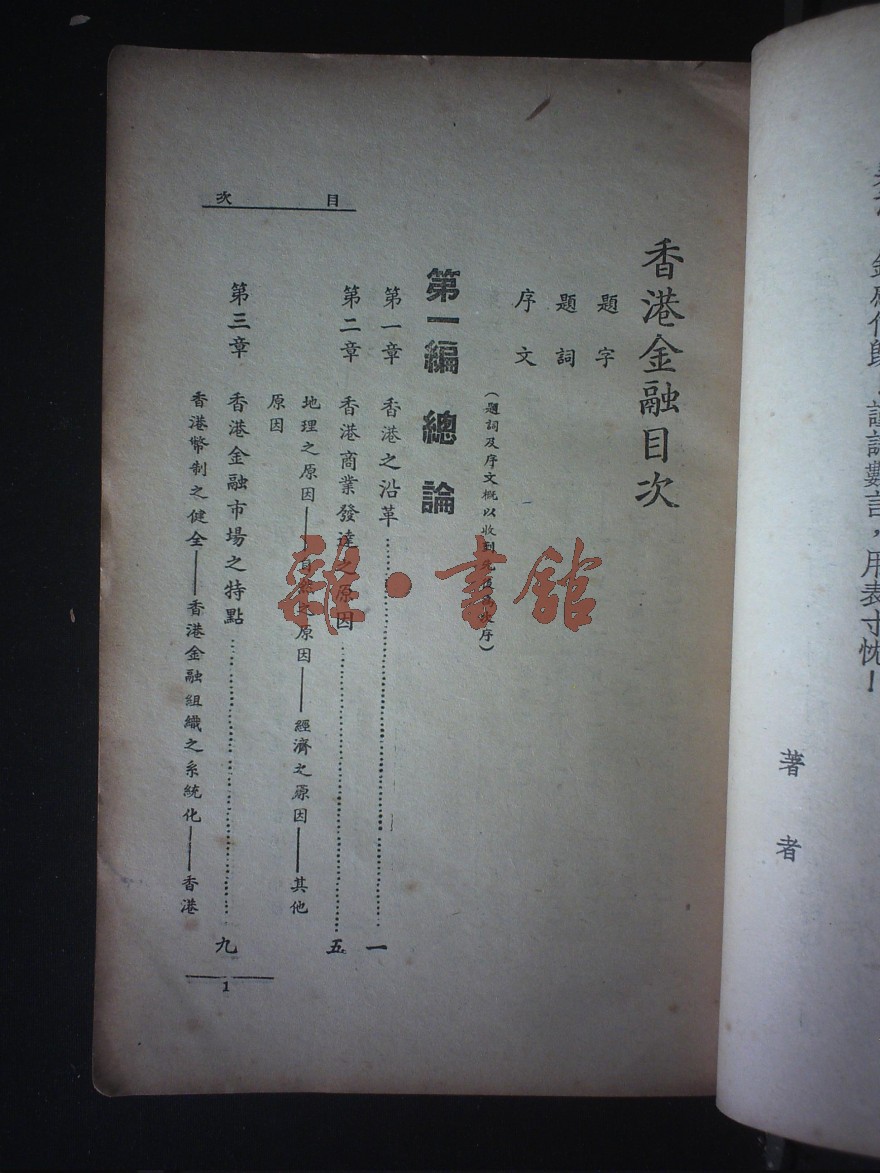 香港金融目次
題字
題詞
序文
(題詞及序文概以收到先後為次序)
第一編 總論
第一章 香港之沿革 一
第二章 香港商業發達之原因 五
地理之原因——自然之原因——經濟之原因——其他
原因
第三章 香港金融市場之特點 九
香港幣制之健全——香港金融組織之系統化——香港
目次
1
雜·書館
謹誌數言,用表寸忱!
著者